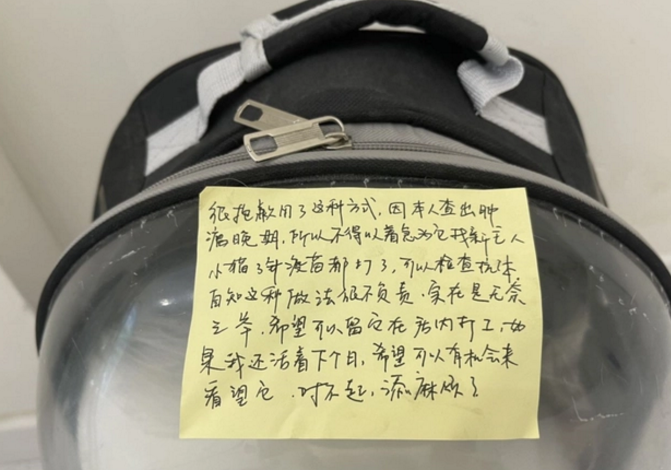 很抱歉用了这种方式，因本人查出肿
瘤晚期，所以不得以着急为它找新主人
小猫3针疫苗都打了，可以检查抗体
自知这种做法很不负责．实在是无奈
之举．希望可以留它在店内打工，如
果我还活着下个月，希望可以有机会来
看望它．对不起，添麻烦了